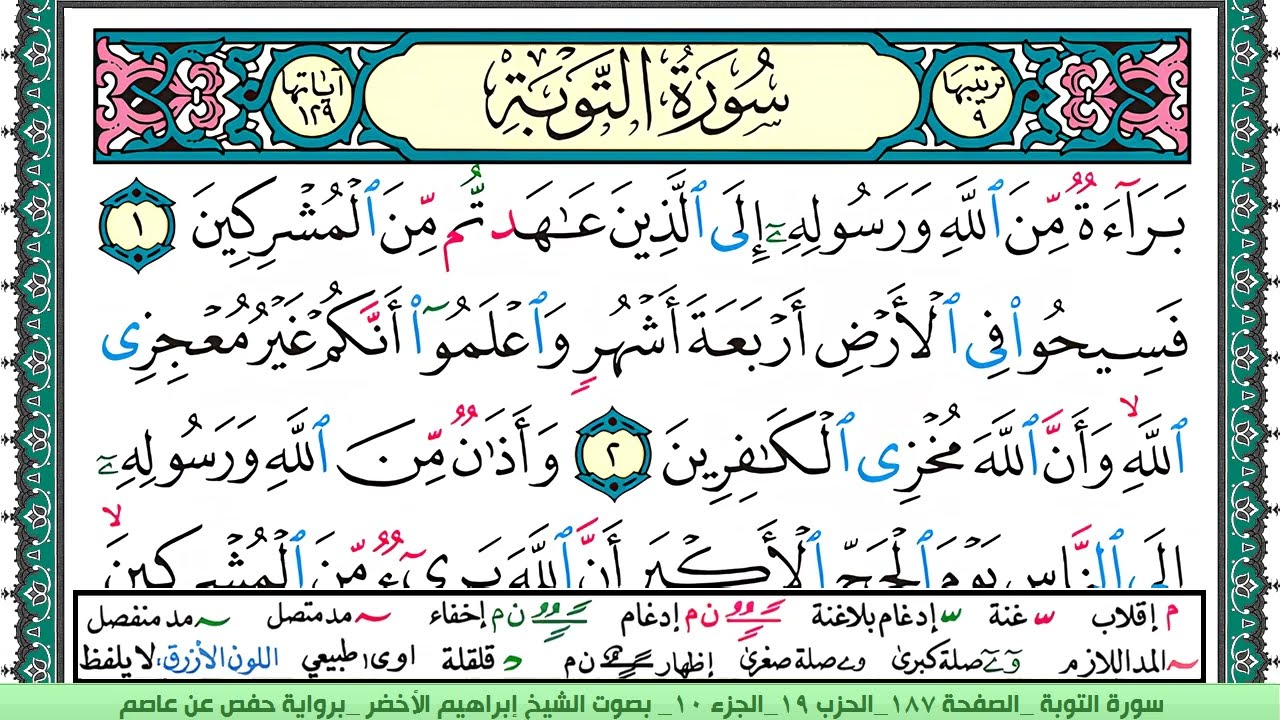 ترتيبها ٩
سُورَةُ التَّوْبَةِ
آياتها ١٢٩
بَرَآءَةٌ مِّنَ ٱللَّهِ وَرَسُولِهِۦٓ إِلَى ٱلَّذِينَ عَـٰهَدتُّم مِّنَ ٱلْمُشْرِكِينَ ١
فَسِيحُوا۟ فِى ٱلْأَرْضِ أَرْبَعَةَ أَشْهُرٍ وَٱعْلَمُوٓا۟ أَنَّكُمْ غَيْرُ مُعْجِزِى
ٱللَّهِ ۙ وَأَنَّ ٱللَّهَ مُخْزِى ٱلْكَـٰفِرِينَ ٢ وَأَذَٰنٌ مِّنَ ٱللَّهِ وَرَسُولِهِۦٓ
إِلَى ٱلنَّاسِ يَوْمَ ٱلْحَجِّ ٱلْأَكْبَرِ أَنَّ ٱللَّهَ بَرِىٓءٌ مِّنَ ٱلْمُشْرِكِينَ ۙ
م إقلاب س غنة س إدغام بلاغنة ن م إدغام ن م إخفاء مد متصل مد منفصل
المد اللازم صلة كبرى صلة صغرى إظهار ن م د قلقلة اوى ا طبيعي اللون الأزرق: لا يلفظ
سورة التوبة _الصفحة ١٨٧_الحزب ١٩_الجزء ١٠_ بصوت الشيخ إبراهيم الأخضر _برواية حفص عن عاصم